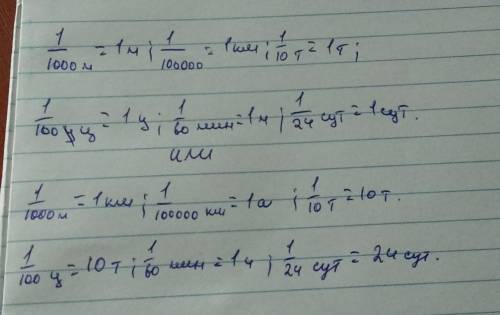 1/1000 м = 1 м ; 1/100000 = 1 км ; 1/10 т = 1 т ;
1/100 ц = 1 ц ; 1/60 мин = 1 ч ; 1/24 сут = 1 сут.
или
1/1000 м = 1 км ; 1/100000 км = 1 а ; 1/10 т = 10 т.
1/100 ц = 10 т ; 1/60 мин = 1 ч ; 1/24 сут = 24 сут.